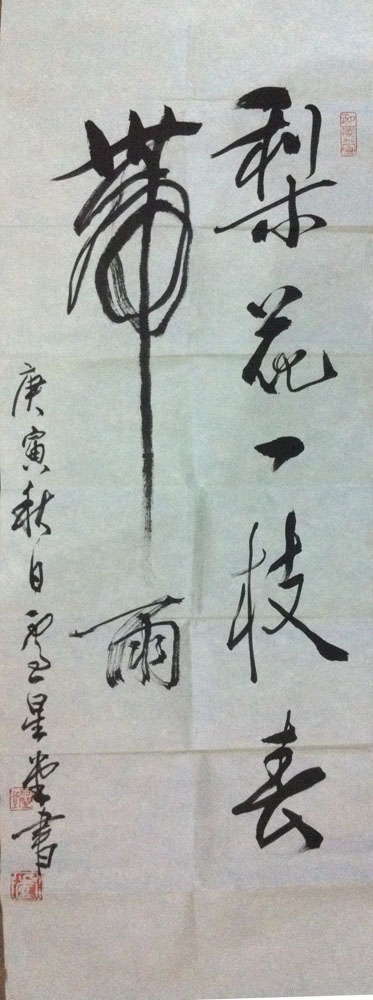 梨花一枝春
帶雨
庚寅秋日盧星堂書